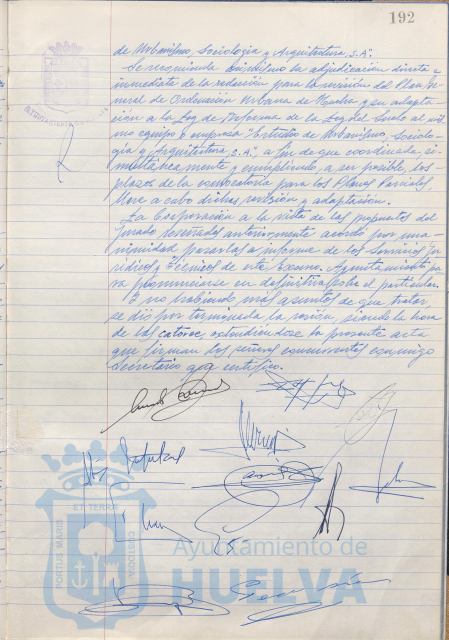 192
de Urbanismo, Sociología y Arquitectura, S.A".
Se recomienda asimismo la adjudicación directa e
inmediata de la redacción para la revisión del Plan Ge-
neral de Ordenación Urbana de Huelva y su adapta-
ción a la Ley de Reforma de la Ley del Suelo al mis-
mo equipo o empresa "Estudio de Urbanismo, Sociolo-
gía y Arquitectura, S.A", a fin de que coordinada, si-
multáneamente y cumpliendo, a ser posible, los
plazos de la convocatoria para los Planes Parciales,
lleve a cabo dichas revisión y adaptación.
La Corporación a la vista de las propuestas del
Jurado reseñadas anteriormente acordó por una-
nimidad pasarlas a informe de los Servicios Ju-
rídicos y Técnicos de este Excmo. Ayuntamiento pa-
ra pronunciarse en definitiva sobre el particular.
Y no habiendo más asuntos de que tratar,
se dio por terminada la sesión, siendo la hora
de las catorce, extendiéndose la presente acta
que firman los señores concurrentes conmigo
Secretario que certifico.
PORTUS MARIS
ET TERRAE
CUSTODIA
Ayuntamiento de
HUELVA